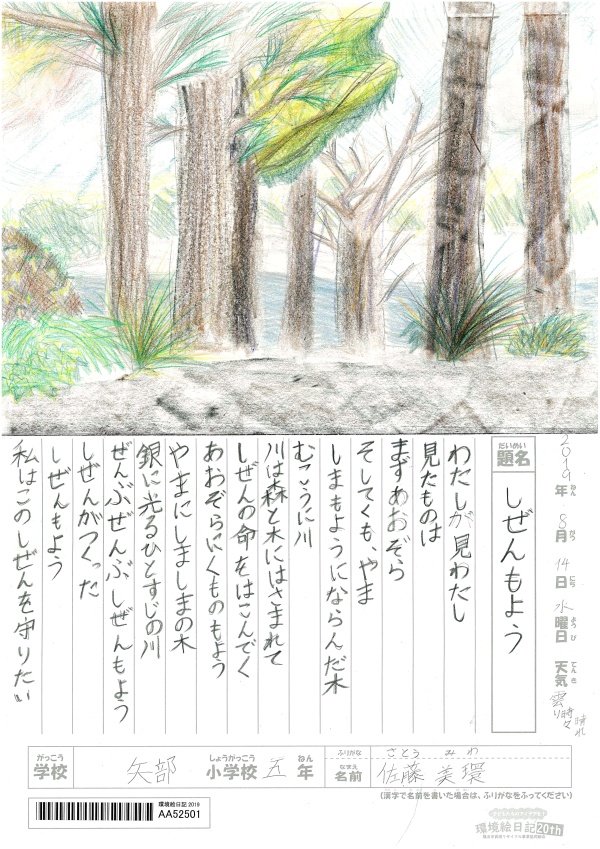 2019年ねん8月がつ14日にち水曜日ようび天気てんき曇り時々晴れ
だいめい
題名
しぜんもよう
わたしが見わたし
見たものは
まずあおぞら
そしてくも、やま
しまもようにならんだ木
むこうに川
川は森と木にはさまれて
しぜんの命をはこんでく
あおぞらにくものもよう
やまにしましまの木
銀に光るひとすじの川
ぜんぶぜんぶしぜんもよう
しぜんがつくった
しぜんもよう
私はこのしぜんを守りたい
がっこう しょうがっこう ねん
学校 矢部 小学校 五 年
ふりがな さとう みわ
なまえ
名前 佐藤 美環
(漢字で名前を書いた場合は、ふりがなをふってください)
環境絵日記 2019
AA52501
環境絵日記20th